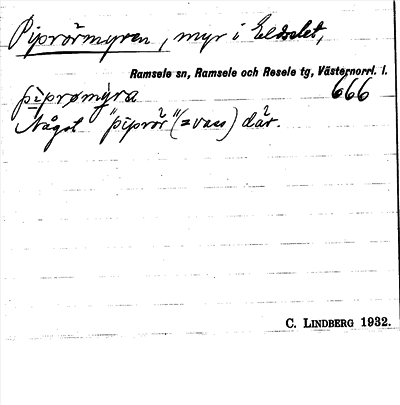 Piprörmyren, myr i Eldselet,
Ramsele sn, Ramsele och Resele tg, Västernorrl. l.
pìprømỳra 666
Något "pìprör" (=vass) där.
C. LINDBERG 1932.